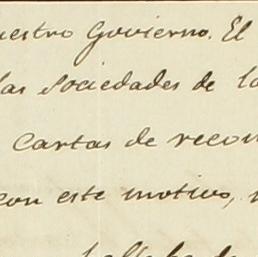 uestro Govierno. El
las sociedades de la
cartas de recom
con este motivo,